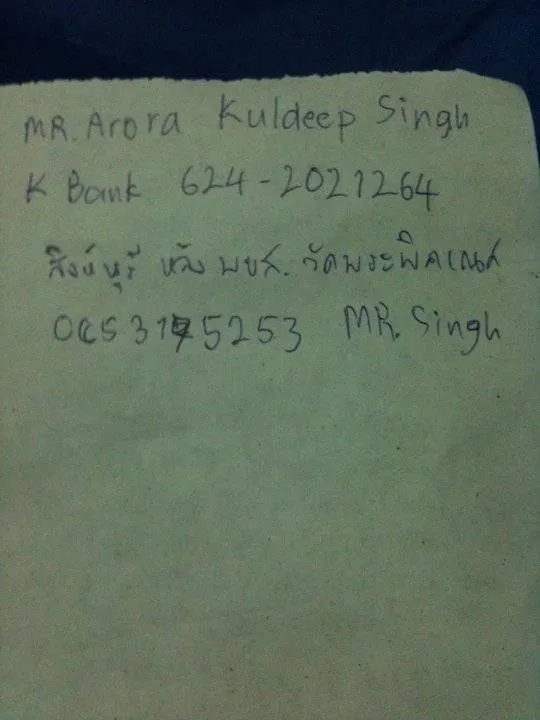 MR. Arora Kuldeep Singh
K Bank 624-2021264
สิงห์บุรี หลัง พขส. วัดพระพิฆเณศ
MR. Singh